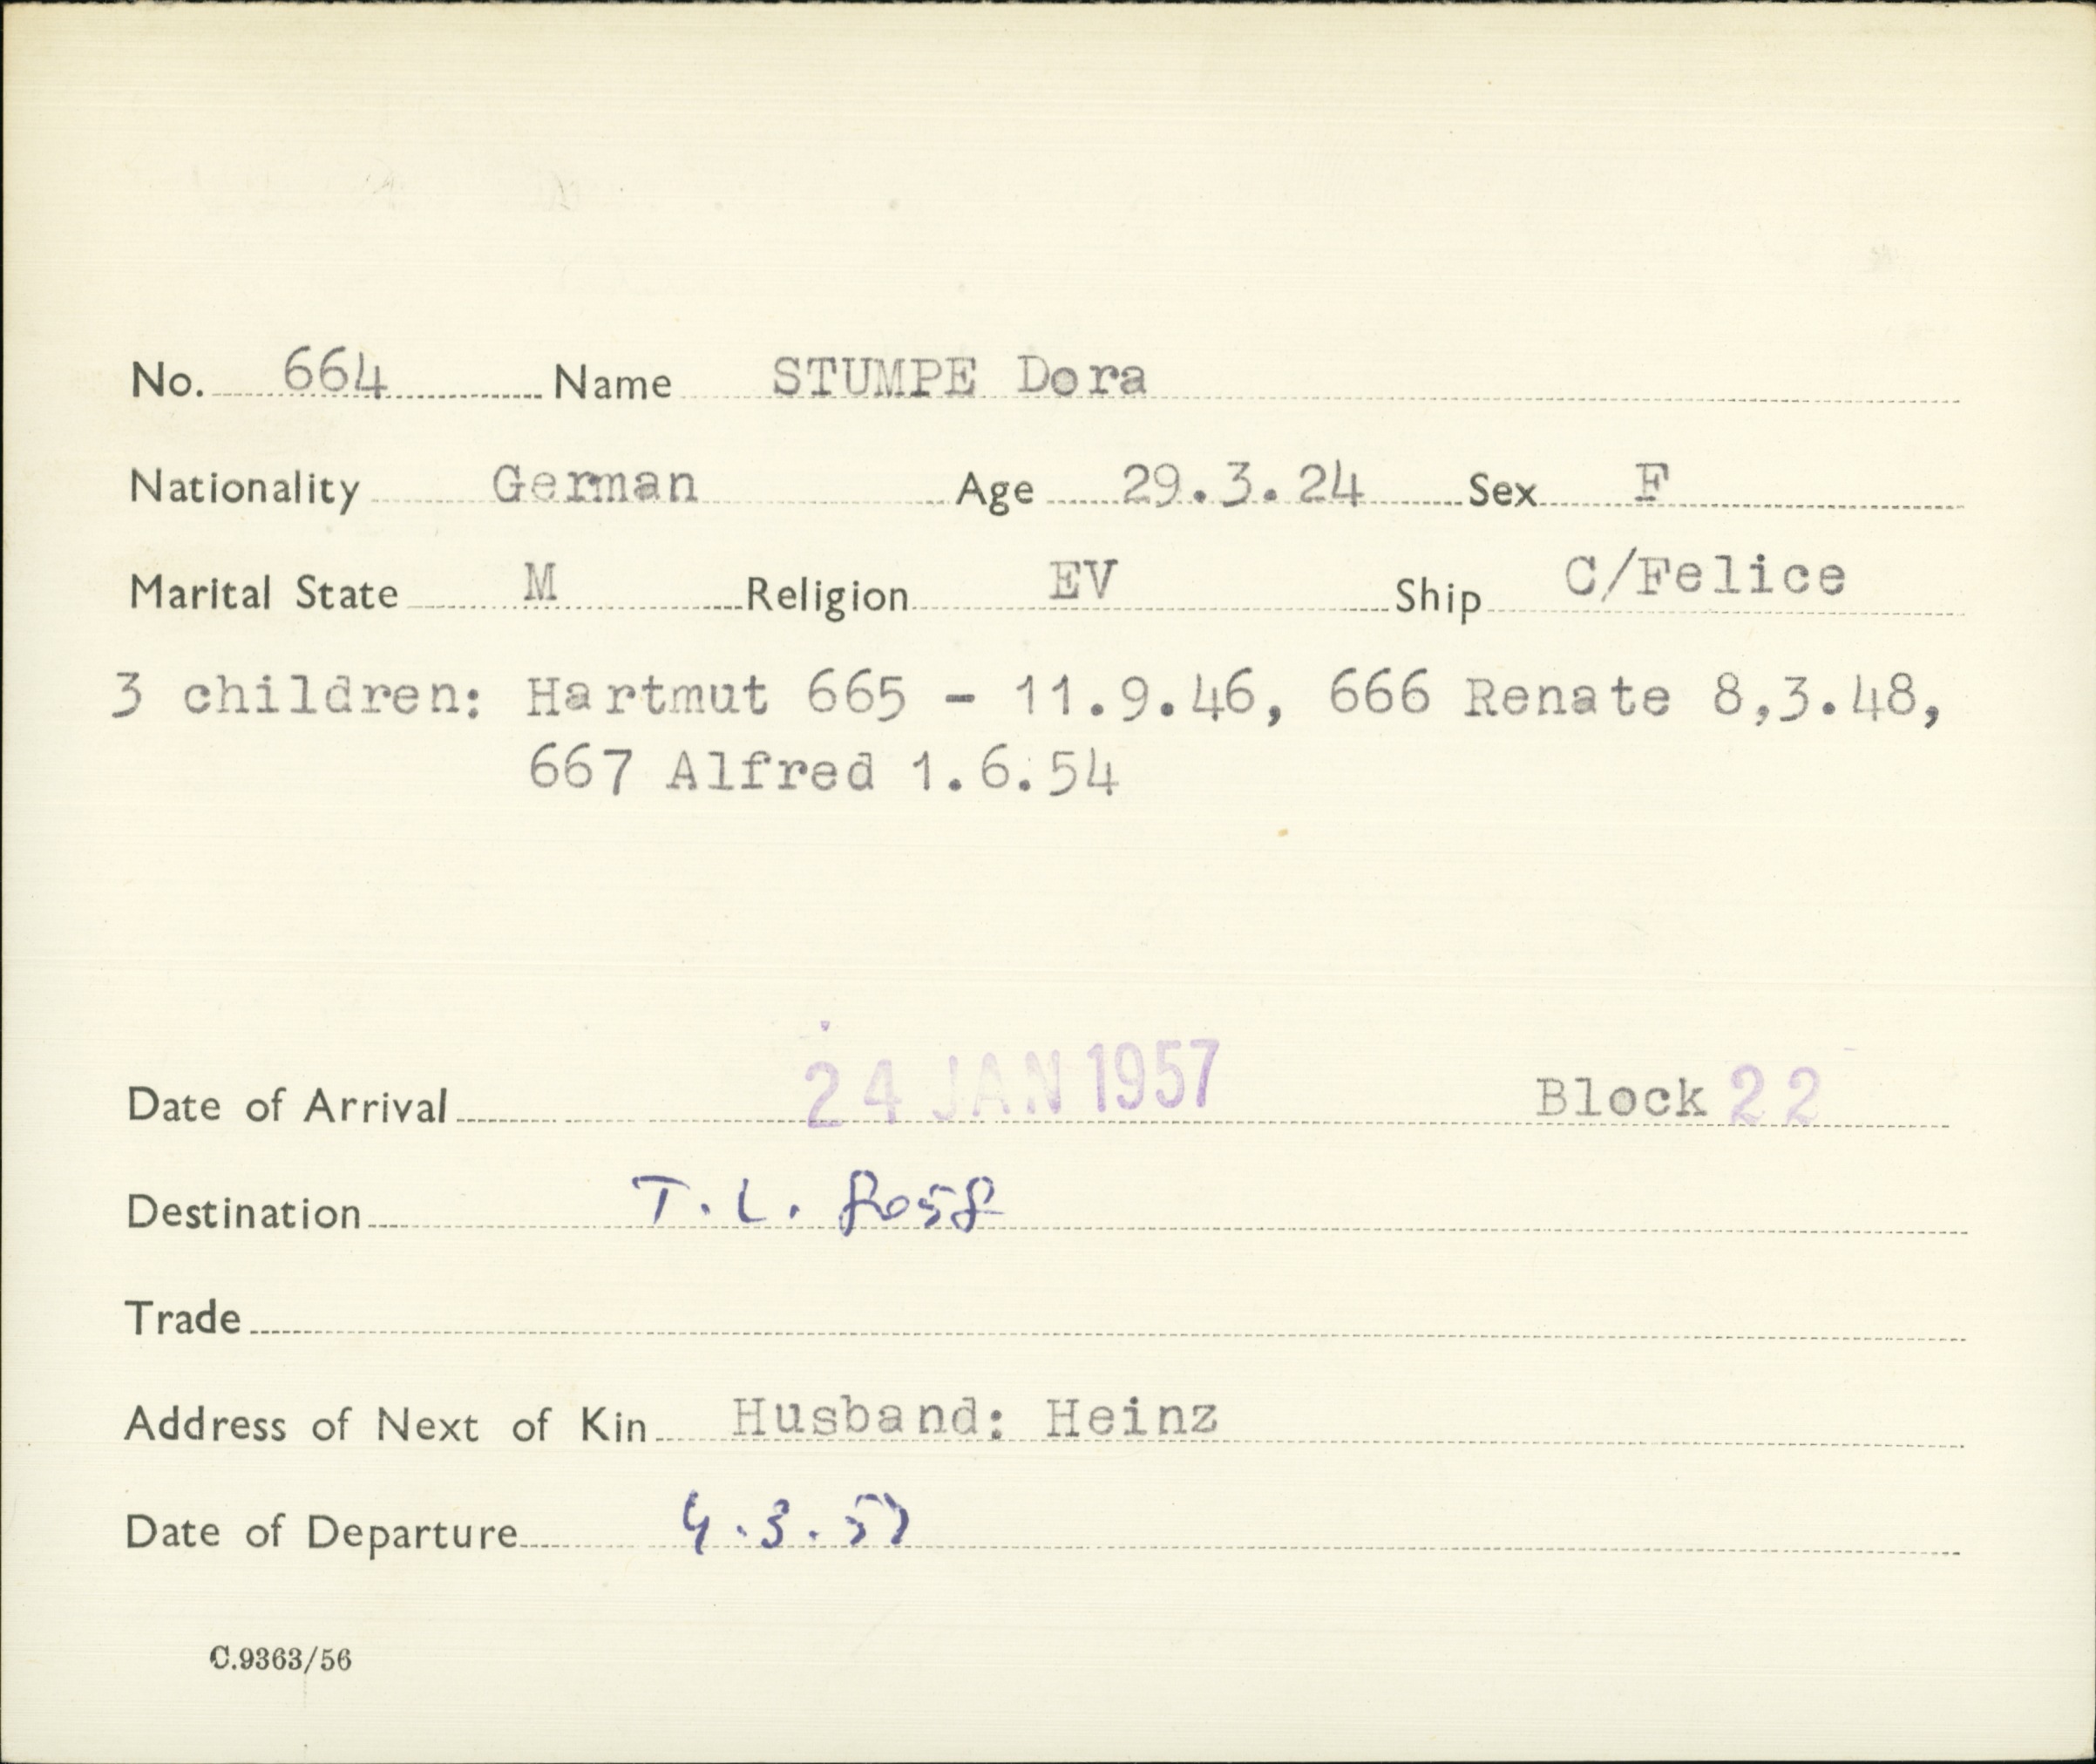 No. 664 Name STUMPE Dora
Nationality German Age 29.3.24 Sex F
Marital State M Religion EV Ship C/Felice
3 children: Hartmut 665 - 11.9.46, 666 Renate 8,3.48,
667 Alfred 1.6.54
Date of Arrival 24 JAN 1957 Block 22
Destination T.L.
Trade
Address of Next of Kin Husband: Heinz
Date of Departure 4.3.57
C.9363/56